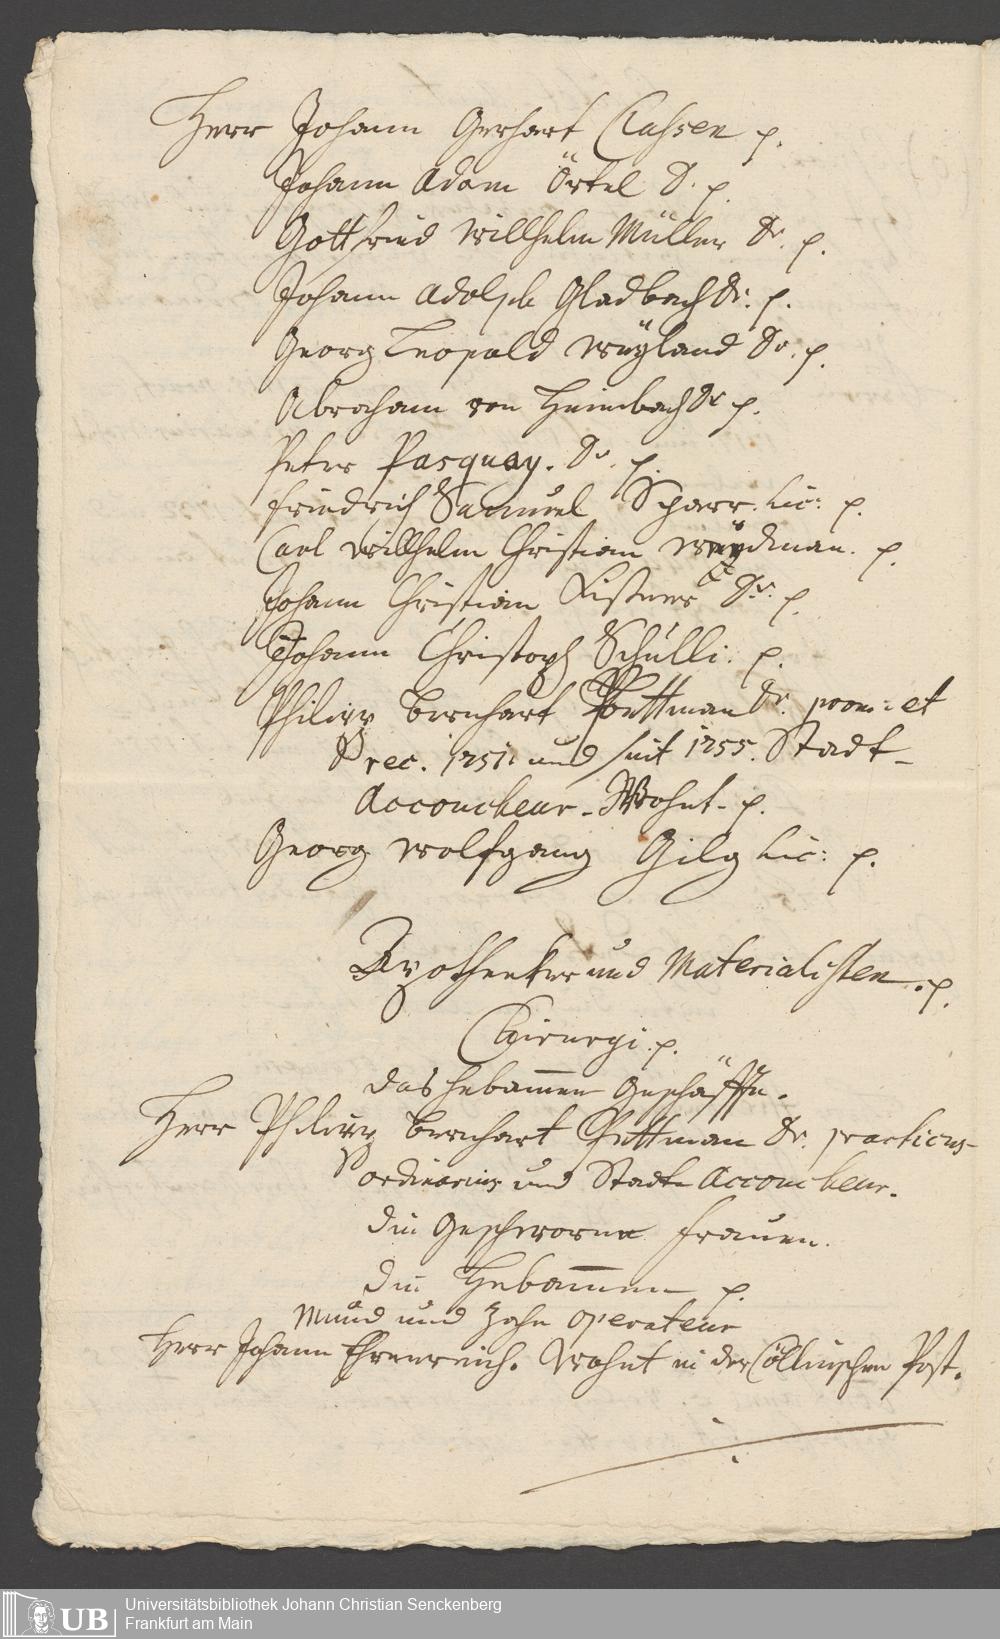 Herr Johann Gerhart Classen p.
Johann Adam Örtel D. p.
Gottfried Willhelm Müller Dr. p.
Johann Adolph Gladbach Dr. p.
Georg Leopold Weÿland Dr. p.
Abraham von Heimbach Dr p.
Peter Pasquay. Dr. p.
Friedrich Samuel Scharr. Lic: p.
Carl Willhelm Christian Weÿdman. p.
Johann Christian Listner Dr. p.
Johann Christoph Schulli. p.
Philipp Bernhart Pettman Dr. prom: et
rec. 1751. und seit 1755. Stadt-
Accoucheur. Wohnt. p.
Georg Wolfgang Gilg Lic: p.
Apotheeker und Materialisten. p.
Chirurgi. p.
das hebam̅en Geschäffte.
Herr Philipp Bernhart Pettman Dr. practicus
ordinarius und Stadt Accoucheur.
die Geschworne Frauen.
die Hebam̅en p.
Mund und Zahn Operateur
Herr Johann Ehrenreich. Wohnt in der Cöllnischen Post.
UB
Universitätsbibliothek Johann Christian Senckenberg
Frankfurt am Main